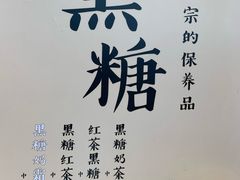 宗的保养品
黑糖
黑糖奶茶
中
红茶黑糖
黑糖红茶
中
黑糖奶霜
中